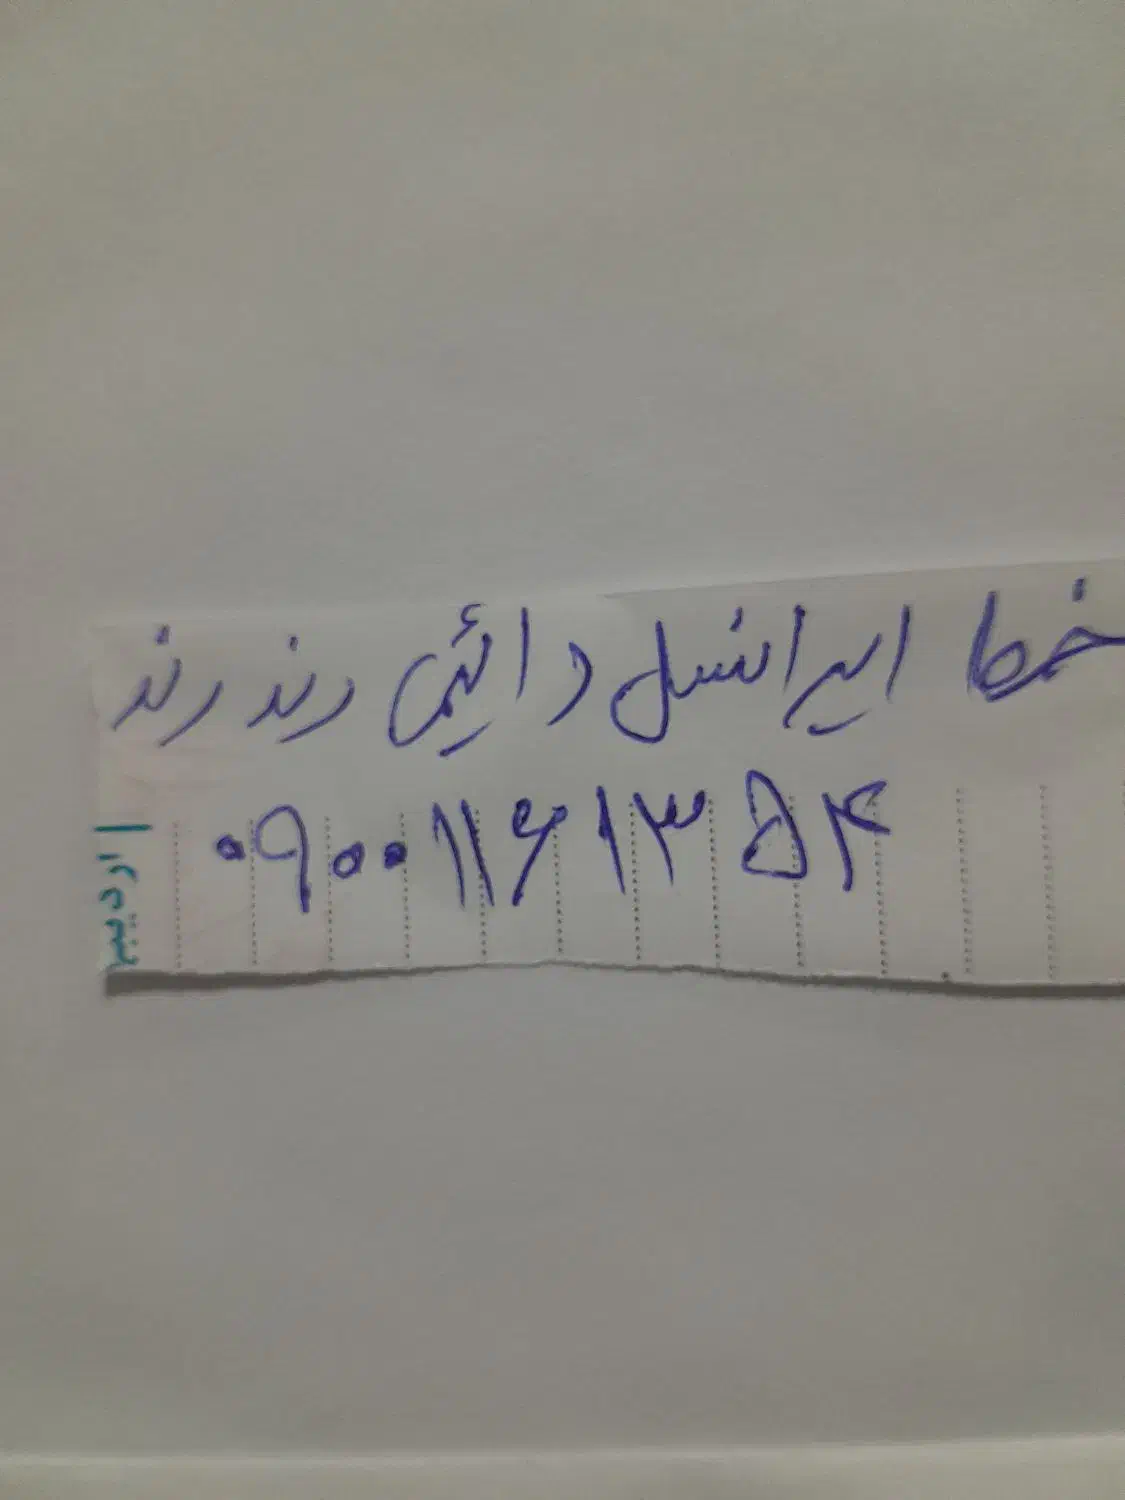 خط ایرانسل دائمی رند رند
۰۹۰۰۱۱۶۱۳۵۴